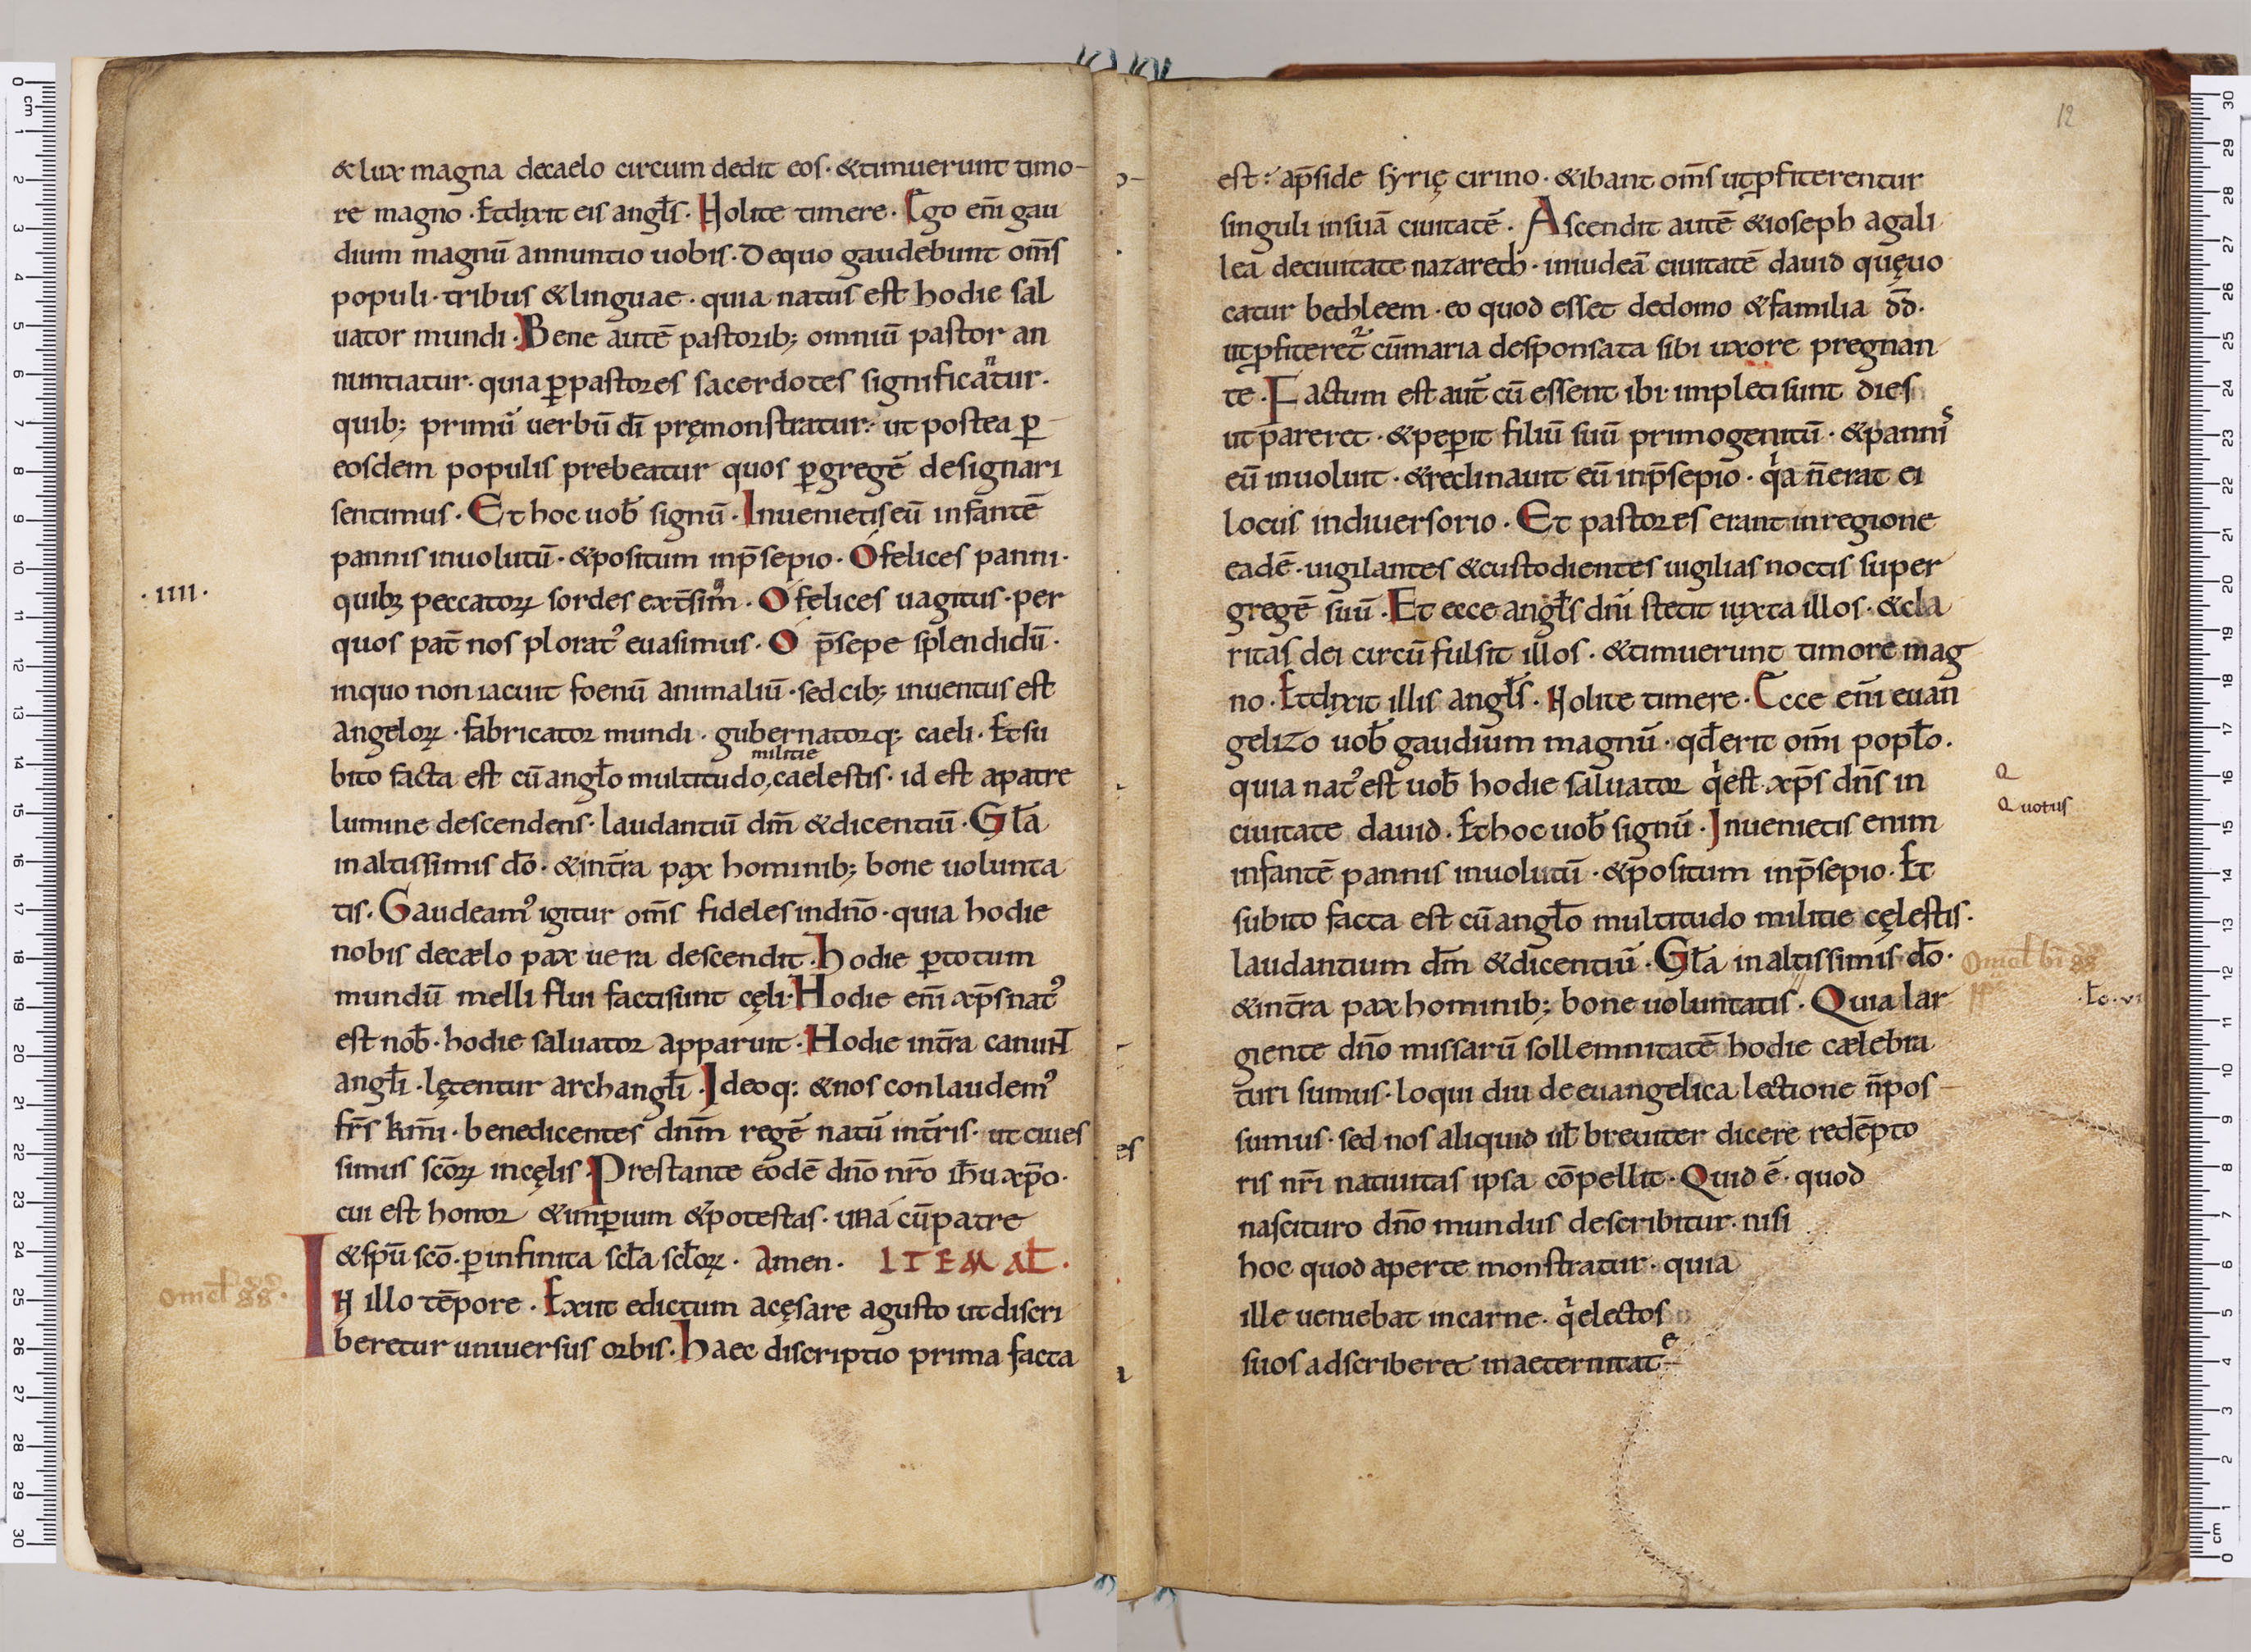 & lux magna decaelo circum dedit eos· &timuerunt timo-
re magno· Etdixit eis angl̄s· Nolite timere· Ego eni̅ gau
dium magnū annuntio uobis· Dequo gaudebunt om̅s
populi· tribus &linguae· quia natus est hodie sal
uator mundi· Bene autē pastorib; omniū pastor an
nuntiatur· quia ꝑpastores sacerdotes significantur·
quib; primū uerbū dī pręmonstratur· ut postea ꝑ
eosdem populis prebeatur quos ꝑgregē designari
sentimus· Et hoc uob̄ signū· Inuenietis eū infantē
pannis inuolutū· &positum inp̄sepio· O felices panni·
·IIII·
quib; peccatoꝝ sordes ext̄simꝰ· O felices uagitus· per
quos pat̄ nos ploratꝰ euasimus· O p̄sepe splendidū·
inquo non iacuit foenū animaliū· sed cib; inuentus est
angeloꝝ· fabricator mundi· gubernatorq; caeli· Etsu
militie
bito facta est cū angl̄o multitudo, caelestis· id est apatre
lumine descendens· laudantiū dm̄ &dicentiū· Gl̄a
inaltissimis dō· &int̄ra pax hominib; bone uolunta
tis· Gaudeamꝰ igitur om̅s fideles indn̄o· quia hodie
nobis decælo pax uera descendit· Hodie ꝑtotum
mundū melli flui factisunt cęli· Hodie eni̅ xp̄s natꝰ
est nob̄· hodie saluator apparuit· Hodie int̄ra canunt
angl̄i· lętentur archangl̄i· Ideoq; &nos conlaudemꝰ
fr̄s km̄i· benedicentes dn̄m regē natū int̄ris· ut ciues
simus sc̄oꝝ incęlis· Prestante eodē dn̄o nr̄o ih̄u xp̄o·
cui est honor &imꝑium &potestas· una cūpatre
&sp̄u sc̄o· ꝑinfinita scl̄a scl̄oꝝ· Amen· ITEM AL̄·
omel̄ gg·
IN illo tēpore· Exiit edictum acęsare agusto utdiscri
beretur uniuersus orbis· Haec discriptio prima facta
12
est· ap̄side syrię cirino· &ibant om̅s utꝓfiterentur
singuli insuā ciuitatē· Ascendit autē &ioseph agali
lea deciuitate nazareth· iniudeā ciuitatē dauid quęuo
catur bethleem· eo quod esset dedomo &familia dd̄·
utꝓfiteret̄ cūmaria desponsata sibi uxore pregnan
te· Factum est aut̄ cū essent ibi· impleti sunt dies
ut pareret· &peꝑit filiū suū primogenitū· &pannis
eū inuoluit· &reclinauit eū inp̄sepio· qͥa n̄erat ei
locus indiuersorio· Et pastores erant inregione
eadē· uigilantes &custodientes uigilias noctis super
gregē suū· Et ecce angl̄s dn̄i stetit iuxta illos· &cla
ritas dei circū fulsit illos· &timuerunt timore mag
no· Etdixit illis angl̄s· Nolite timere· Ecce eni̅ euan
gelizo uob̄ gaudium magnū· qd̄erit om̅i popl̄o·
quia natꝰest uob̄ hodie saluator qͥest xp̄s dn̄s in
Q
Quotus
ciuitate dauid· Ethoc uob̄ signū· Inuenietis enim
infantē pannis inuolutū· &positum inp̄sepio· Et
subito facta est cū angl̄o multitudo militie cęlestis·
laudantium dm̄ &dicentiū· Gl̄a inaltissimis dō·
Omel̄ bī gg
&int̄ra pax hominib; bone uoluntatis· Quia lar
·l̄c·vi
giente dn̄o missarū sollemnitatē hodie cælebra
turi sumus· loqui diu de euangelica lectione n̄pos-
sumus· sed nos aliquid ul̄ breuiter dicere redēpto
ris nr̄i natiuitas ipsa cōpellit· Quid ē· quod
nascituro dn̄o mundus describitur· nisi
hoc quod aperte monstratur· quia
ille ueniebat incarne· qͥelectos
suos adscriberet inaeternitate